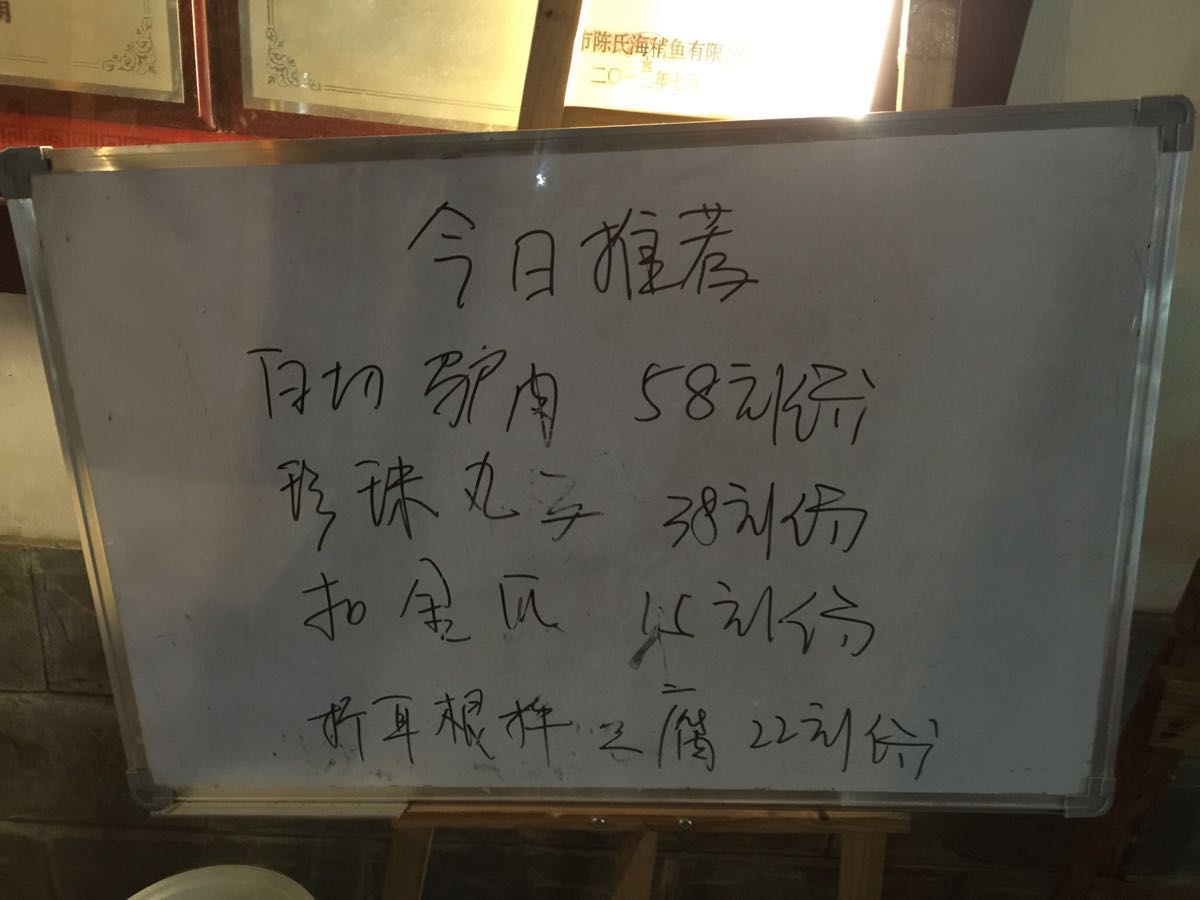 明
市陈氏海稍鱼有限公
二〇一二年七月
今日推荐
白切驴肉 58元/份
珍珠丸子 38元/份
扣金瓜 15元/份
折耳根拌豆腐 22元/份